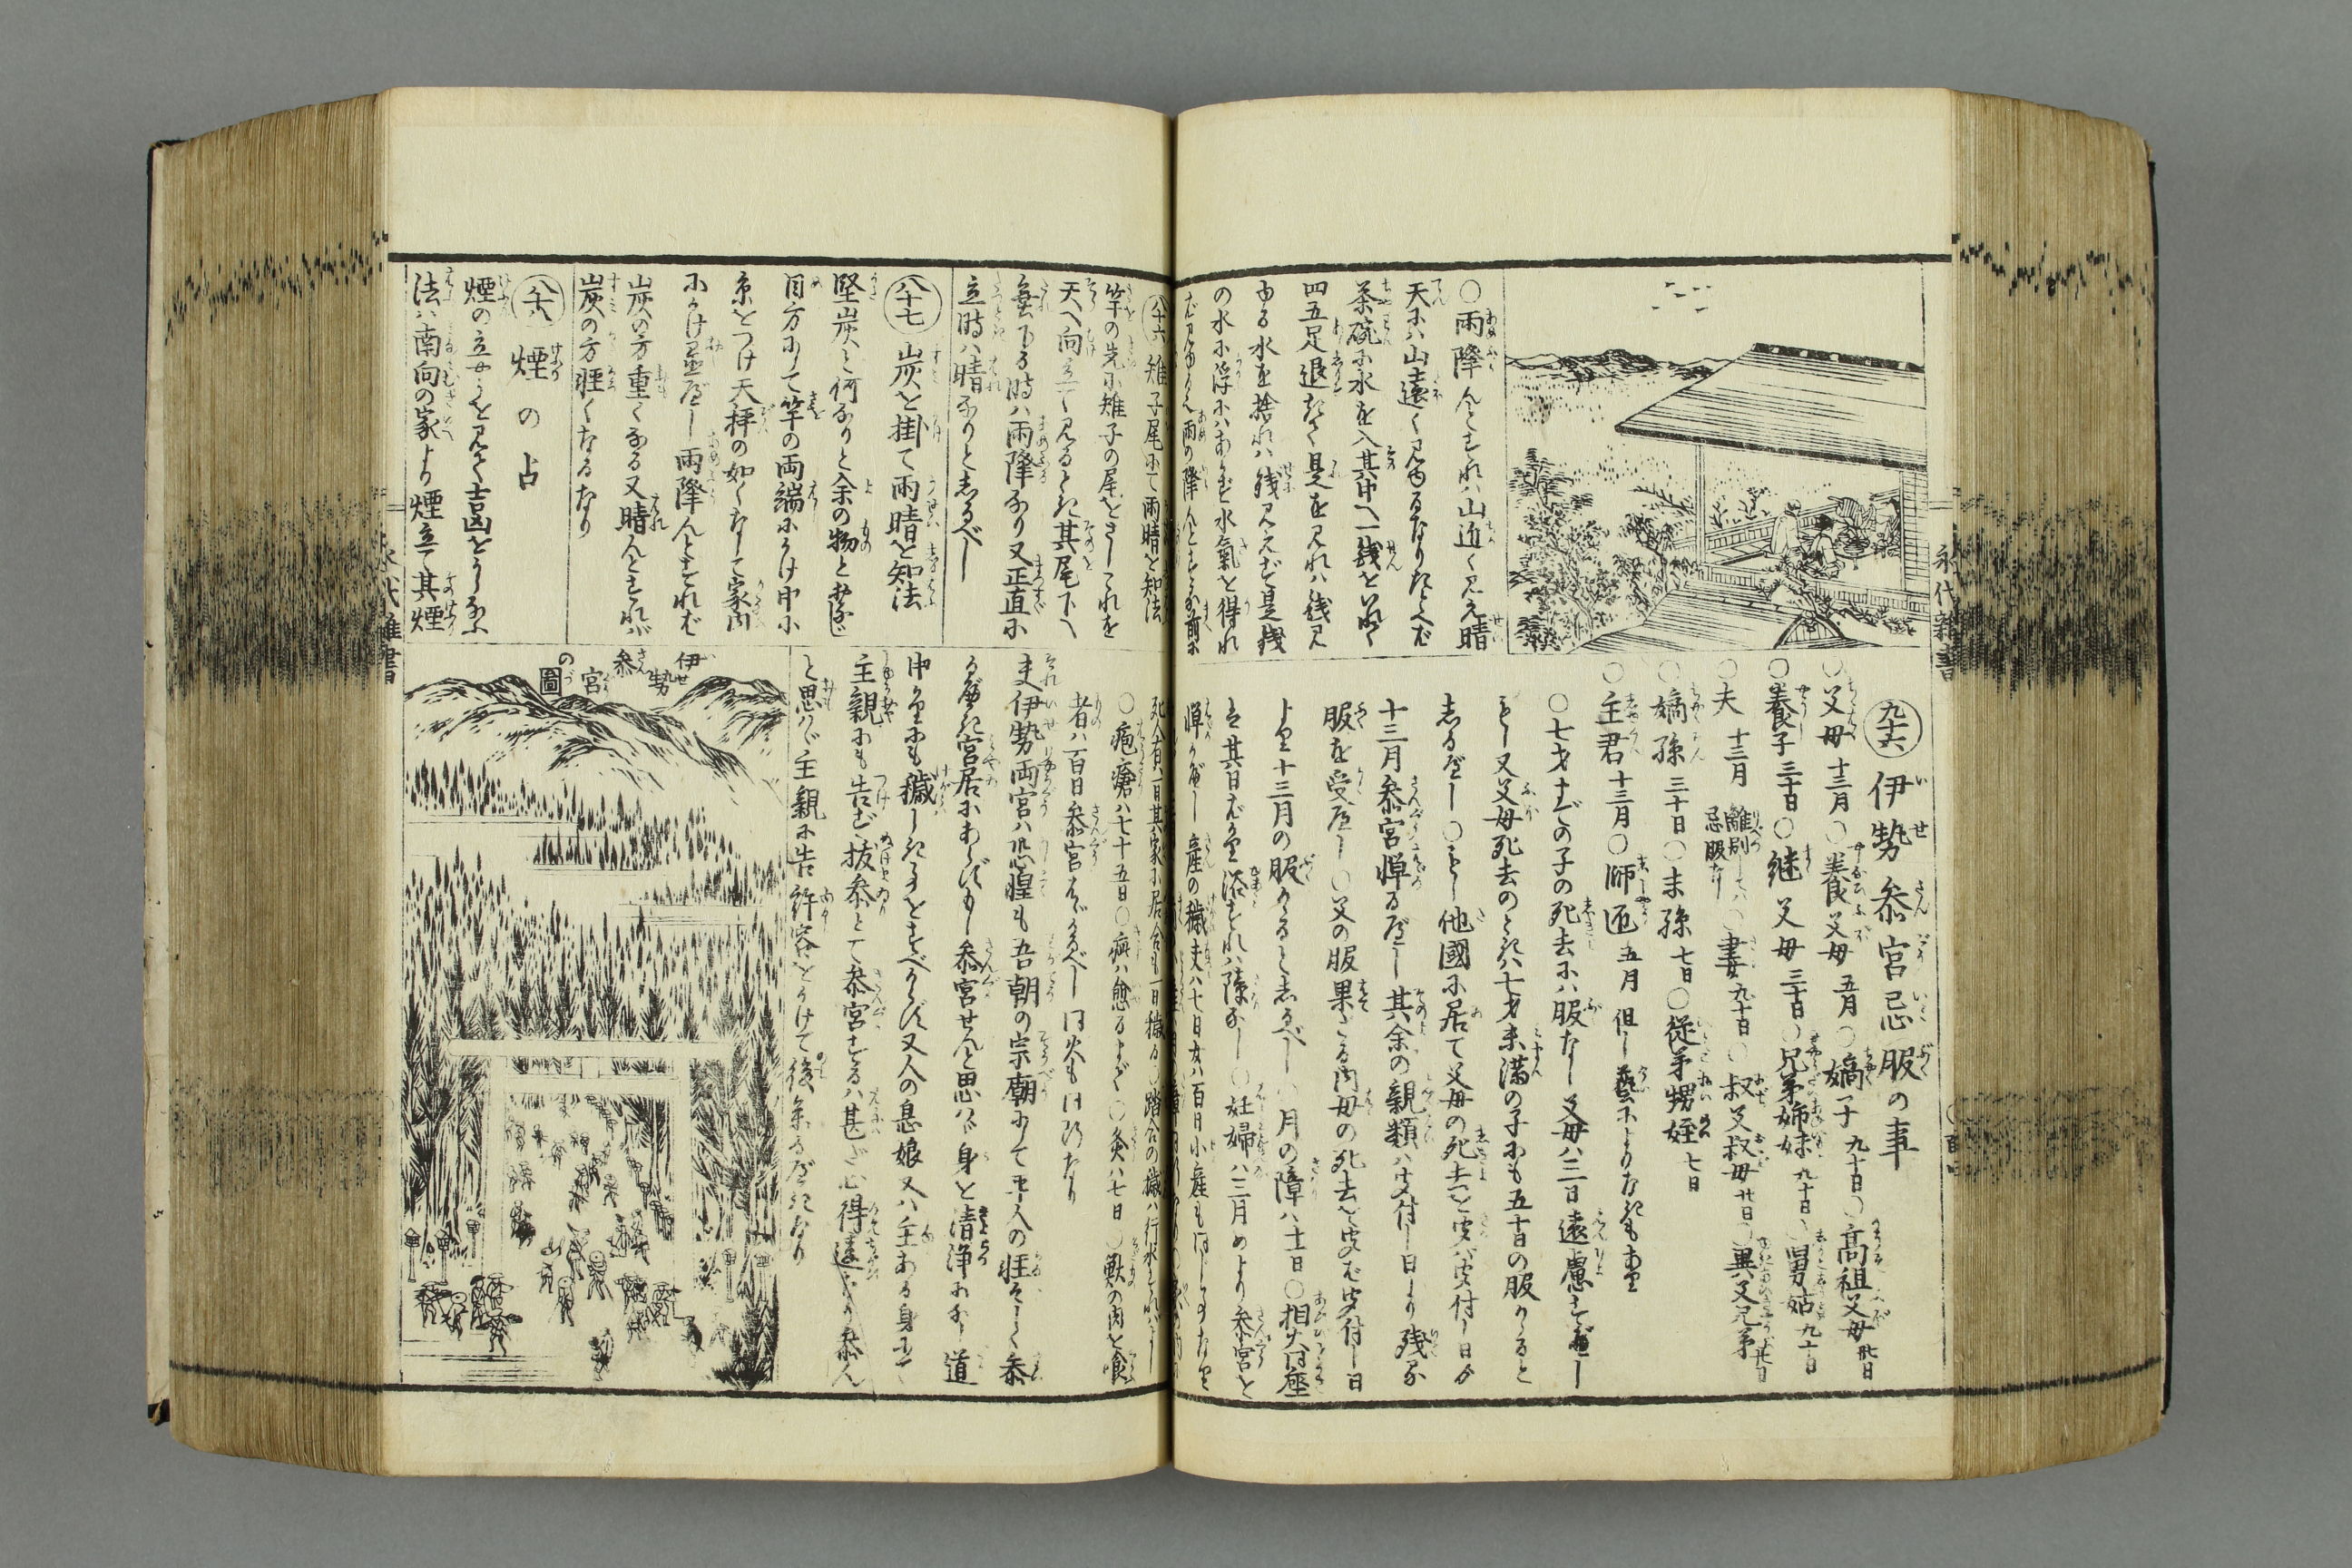 永代雑書
○雨降んとすれハ山近く見え晴
天にハ山遠く見ゆるなりたとへば
茶碗に水を入其中へ一銭をいれて
四五足退きて是を見れハ銭見
ゆる水を捨れハ銭見えず是銭
の水に浮にハあらず水氣を得れ
ば見ゆる也雨の降んとする前に
九十六 伊勢参宮忌服の事
○父母 十三月 ○養父母 五月 ○嫡子 九十日 ○高祖父母 卅日
○養子 三十日 ○継父母 三十日 ○兄弟姉妹 九十日 ○舅姑 九十日
○夫 十三月 離別してハ忌服なし ○妻 九十日 ○叔父叔母 廿日 ○異父兄弟 廿日
○嫡孫 三十日 ○末孫 七日 ○従弟甥姪 七日
○主君 十三月 ○師匠 五月 但し藝によりなきもあり
○七才までの子の死去にハ服なし父母ハ三日遠慮すべし
もし又父母死去のときハ七才未満の子にも五十日の服かゝると
しるべし○もし他國に居て父母の死去を聞バ聞付し日ゟ
十三月参宮憚るべし其余の親類ハ聞付し日より残る
服を受べし○父の服果ざる内母の死去を聞ば聞付し日
より十三月の服かゝるとしるべし○月の障ハ十一日○相火同座
ハ其日ばかり浴すれハ障なし○妊婦ハ三月めより参宮を
憚るべし産の穢夫ハ七日女ハ百日小産も同じ
八十六 雉子尾にて雨晴を知法
竿の先に雉子の尾をさしこれを
天へ向立て見るとき其尾下へ
垂下る時ハ雨降なり又正直に
立時ハ晴なりとしるべし
八十七 山炭を掛て雨晴を知法
堅炭と何なりと余の物と同じ
目方にして竿の両端にかけ中に
糸をつけ天秤の如くなして家内
にかけ置べし雨降んとすれば
山炭の方重くなる又晴んとすれバ
炭の方軽くなるなり
八十八 煙の占
煙の立やうを見て吉凶をうらなふ
法ハ南向の家より煙立て其煙
死人有ハ一日其家に居合も一日穢る○踏合の穢ハ行水すれハよし
○疱瘡ハ七十五日○疥ハ愈るまで○灸ハ七日○獣の肉を食
者ハ百日参宮はゞかるべし同火も同断なり
夫伊勢両宮ハ恐惶も吾朝の宗廟にして平人の軽そしく参
るべき宮居にあらずもし参宮せんと思ハゞ身を清浄になし道
中にも穢しきことをすべからず又人の息娘又ハ主ある身にて
主親にも告ず抜参とて参宮するハ甚ざ心得違なり参ん
と思ハゞ主親に告許容をうけて後参るべきなり
伊勢参宮の圖
永代雑書